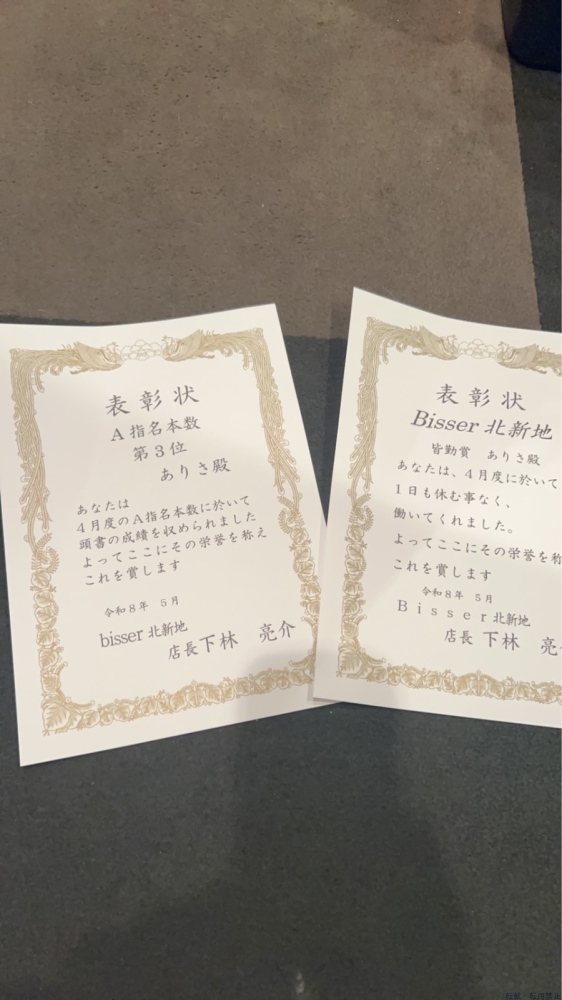 表彰状
A指名本数
第3位
ありさ殿
あなたは
4月度のA指名本数に於いて
頭書の成績を収められました
よってここにその栄誉を称え
これを賞します
令和8年 5月
bisser 北新地
店長 下林 亮介
表彰状
Bisser 北新地
皆勤賞 ありさ殿
あなたは、4月度に於いて
1日も休む事なく、
働いてくれました。
よってここにその栄誉を称
これを賞します
令和8年 5月
Bisser 北新地
店長 下林 亮